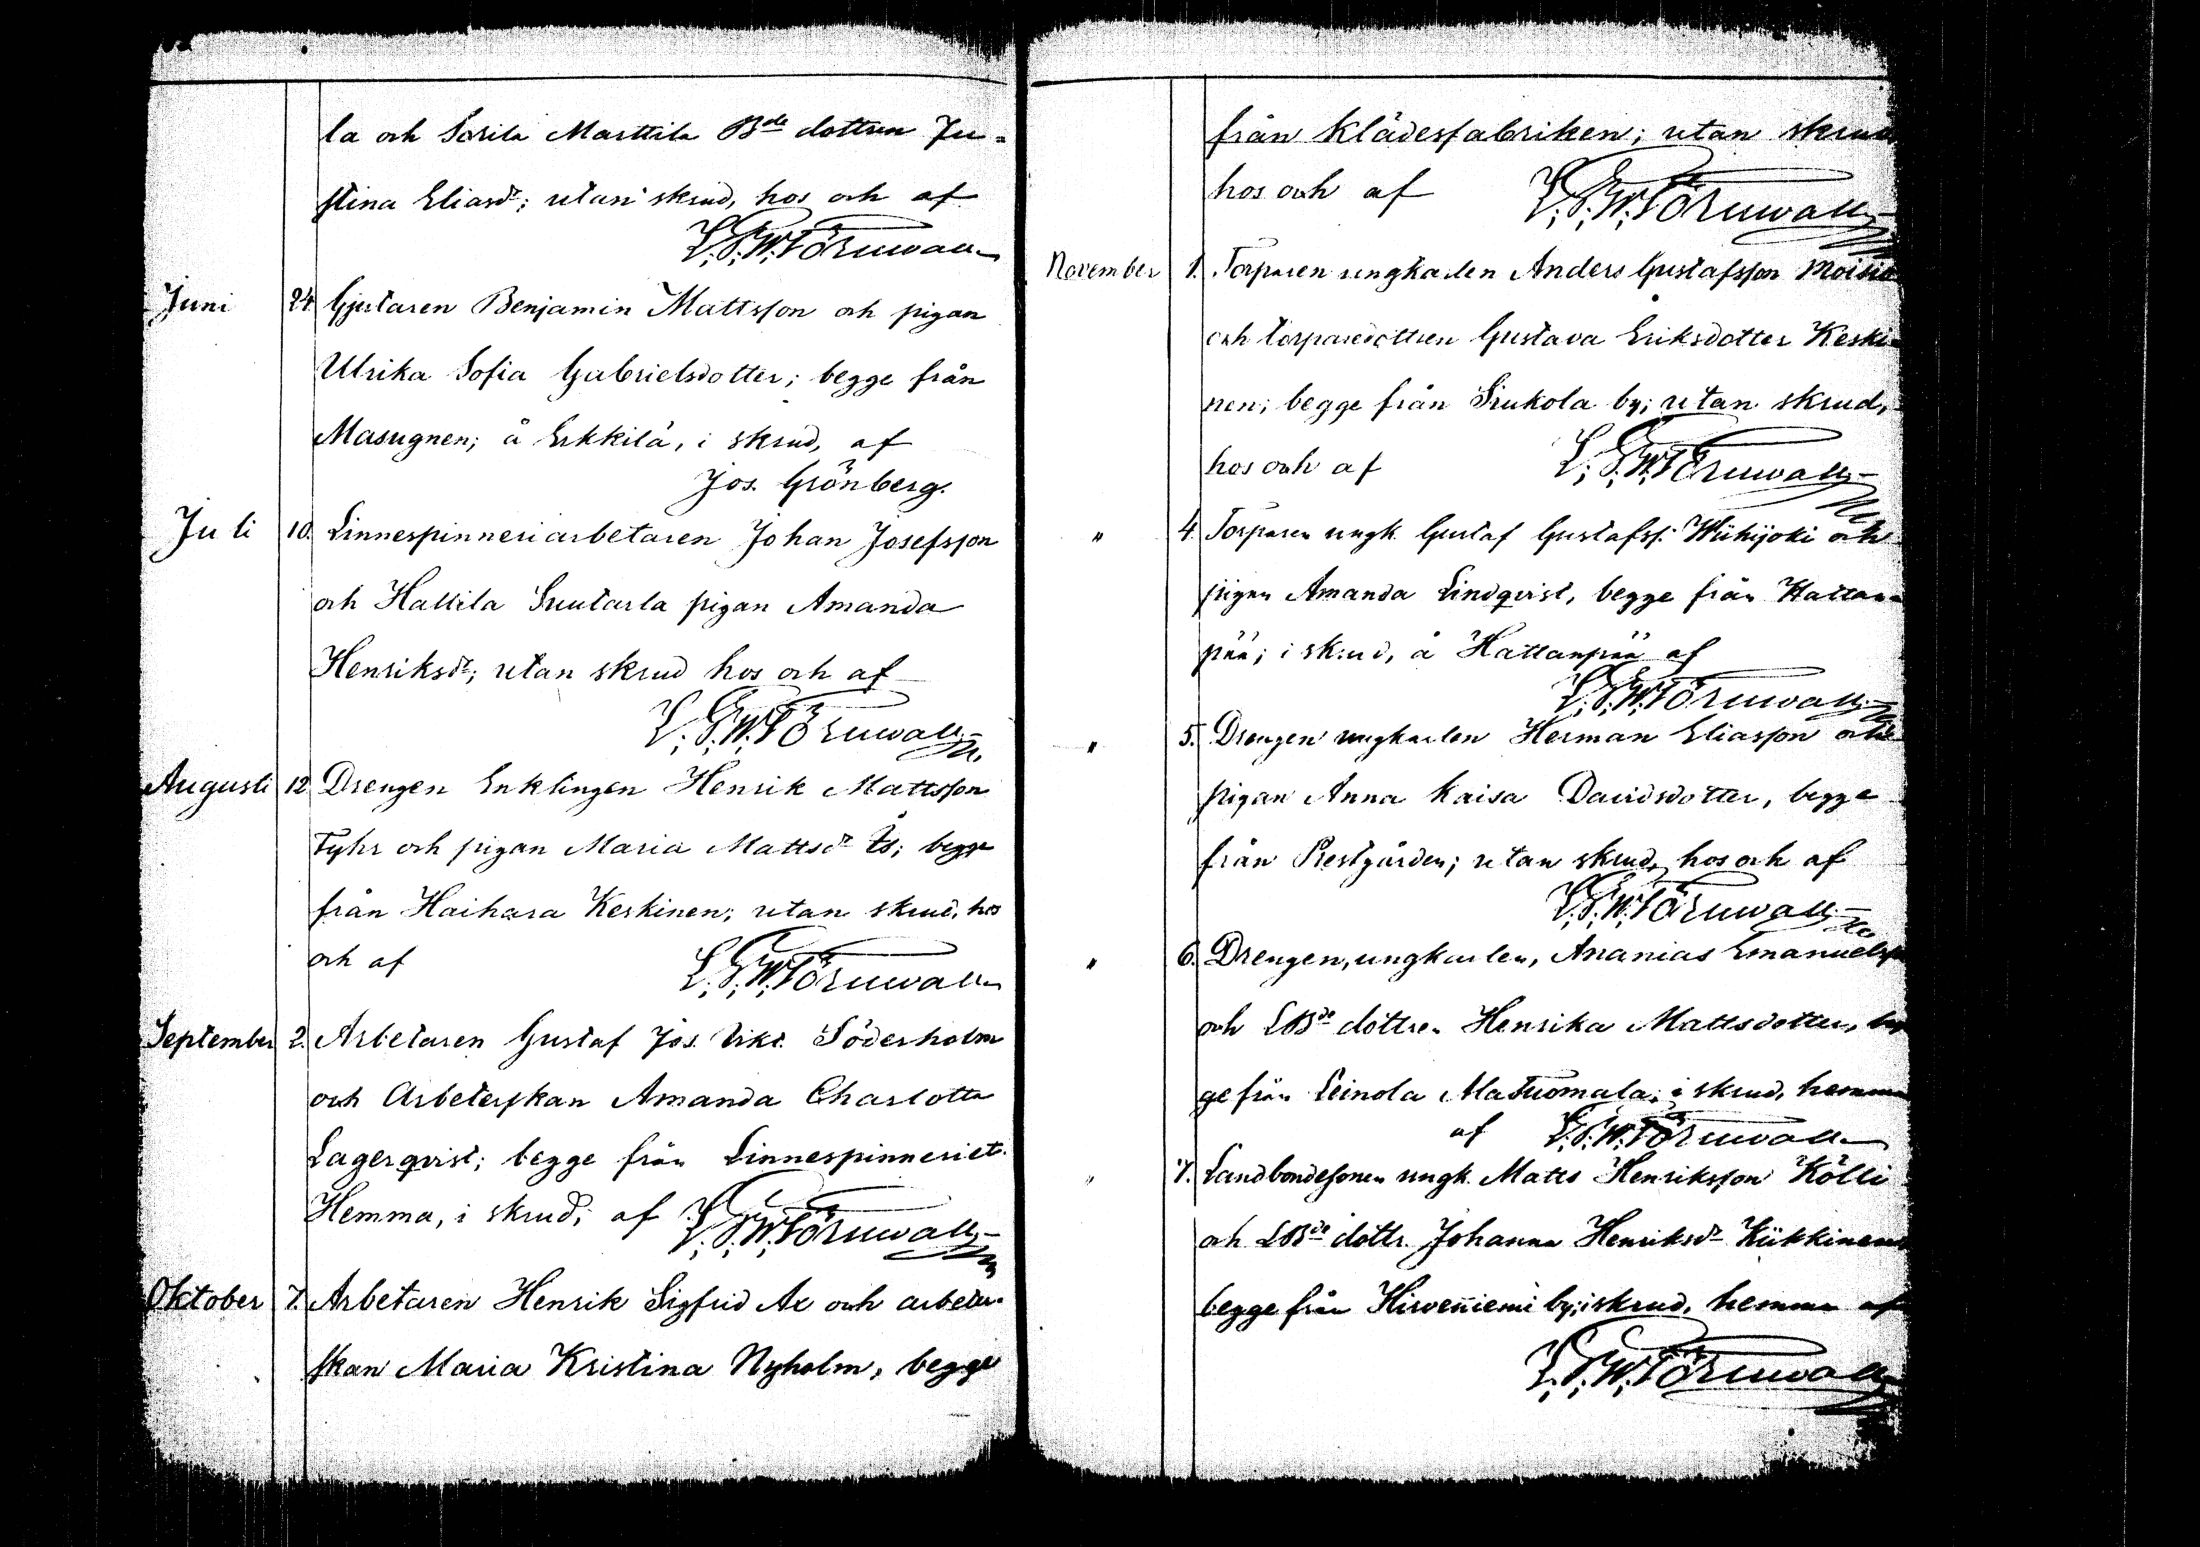 la och Sorila Marttila Bde dottren Ju-
stina Eliasdr; utan skrud, hos och af
L; G; W; Törnwall
Juni 24. Gjutaren Benjamin Mattsson och pigan
Ulrika Sofia Gabrielsdotter; begge från
Masugnen; å Erkkilä, i skrud, af
Jos. Grönberg.
Juli 10. Linnespinneriarbetaren Johan Josefsson
och Hallila Suutarla pigan Amanda
Henriksdr; utan skrud hos och af
L; G; W; Törnwall
Augusti 12. Drengen Enklingen Henrik Mattsson
Fyhr och pigan Maria Mattsdr Ås; begge
från Haihara Keskinen; utan skrud, hos
och af L; G; W; Törnwall
September 2. Arbetaren Gustaf Jos. Vikt. Söderholm
och Arbeterskan Amanda Charlotta
Lagerqvist; begge från Linnespinneriet.
Hemma, i skrud; af L; G; W; Törnwall
Oktober 7. Arbetaren Henrik Sigfrid Ax och arbeter-
skan Maria Kristina Nyholm, begge
från Klädesfabriken; utan skrud
hos och af L; G; W; Törnwall
November 1. Torparen ungkarlen Anders Gustafsson Moisio
och torparedottren Gustava Eriksdotter Keski-
nen; begge från Siukola by; utan skrud,
hos och af L; G; W; Törnwall
" 4. Torparen ungk. Gustaf Gustafss. Wiikijoki och
pigan Amanda Lindqvist, begge från Hattan-
pää; i skrud, å Hattanpää af
L; G; W; Törnwall
" 5. Drengen ungkarlen Herman Eliasson och
pigan Anna Kaisa Davidsdotter, begge
från Prestgården; utan skrud, hos och af
L; G; W; Törnwall
" 6. Drengen, ungkarlen, Ananias Emanuelss
och LBde dottren Henrika Mattsdotter, beg
ge från Leinola Matuomala; i skrud, hemma
af L; G; W; Törnwall
" 7. Landbondesonen ungk. Matts Henriksson Kölli
och LBde dottr. Johanna Henriksdr Kiikkinen
begge från Hirvenniemi by; i skrud, hemma af
L; G; W; Törnwall